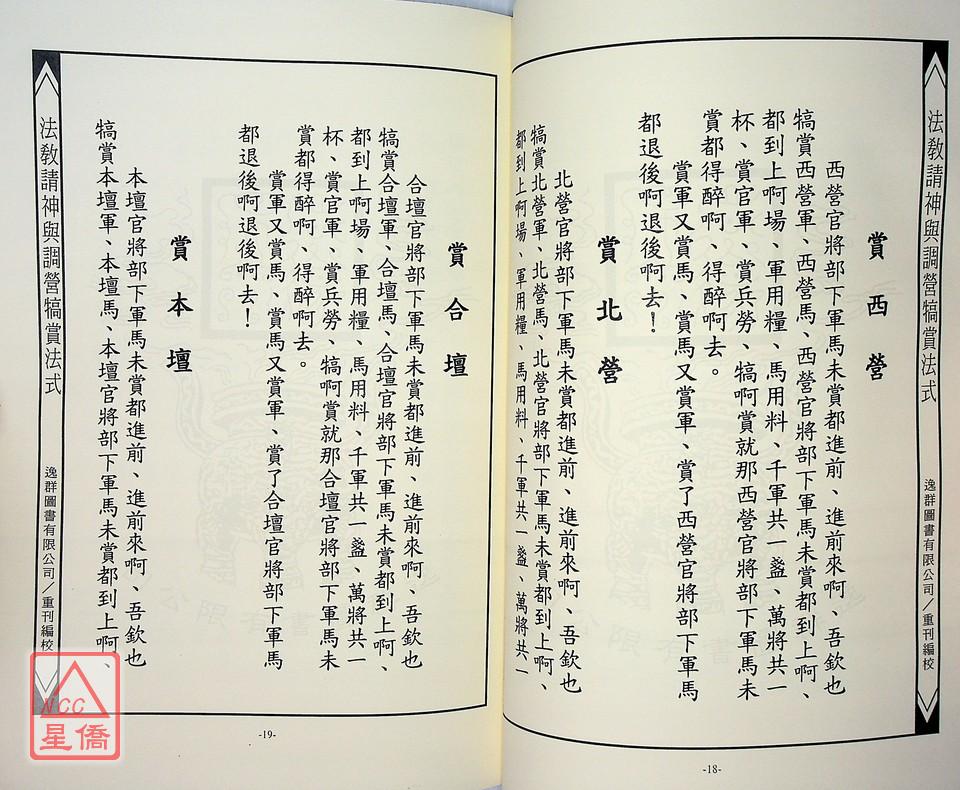 法教請神與調營犒賞法式
逸群圖書有限公司／重刊編校
賞西營
西營官將部下軍馬未賞都進前、進前來啊、吾欽也
犒賞西營軍、西營馬、西營官將部下軍馬未賞都到上啊、
都到上啊場、軍用糧、馬用料、千軍共一盞、萬將共一
杯、賞官軍、賞兵勞、犒啊賞就那西營官將部下軍馬未
賞都得醉啊、得醉啊去。
賞軍又賞馬、賞馬又賞軍、賞了西營官將部下軍馬
都退後啊退後啊去！
賞北營
北營官將部下軍馬未賞都進前、進前來啊、吾欽也
犒賞北營軍、北營馬、北營官將部下軍馬未賞都到上啊、
都到上啊場、軍用糧、馬用料、千軍共一盞、萬將共一
-18-
賞合壇
合壇官將部下軍馬未賞都進前、進前來啊、吾欽也
犒賞合壇軍、合壇馬、合壇官將部下軍馬未賞都到上啊、
都到上啊場、軍用糧、馬用料、千軍共一盞、萬將共一
杯、賞官軍、賞兵勞、犒啊賞就那合壇官將部下軍馬未
賞都得醉啊、得醉啊去。
賞軍又賞馬、賞馬又賞軍、賞了合壇官將部下軍馬
都退後啊退後啊去！
賞本壇
本壇官將部下軍馬未賞都進前、進前來啊、吾欽也
犒賞本壇軍、本壇馬、本壇官將部下軍馬未賞都到上啊、
法教請神與調營犒賞法式
逸群圖書有限公司／重刊編校
-19-
NCC
星僑